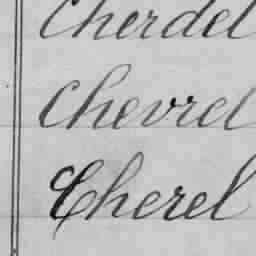 Cherdel
Chevrel
Cherel